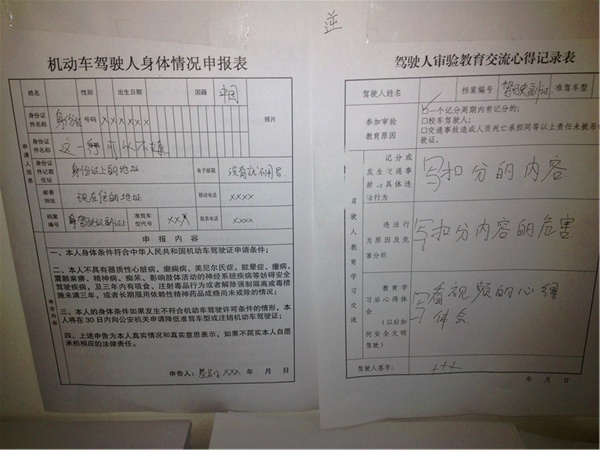 逆
机动车驾驶人身体情况申报表
姓名 性别 出生日期 国籍 中国
身份证件名称 身份证 号码 xxxxxx 照片
身份证件名称 这一行可以不填
身份证件记载住址 身份证上的地址 电子邮箱 没有就不用写
邮寄地址 现在住的地址 移动电话 xxxx
档案编号 准驾车型代号 xxx 联系电话 xxxx
申请人信息
申报内容
申告内容
一、本人身体条件符合中华人民共和国机动车驾驶证申请条件;
二、本人不具有器质性心脏病、癫痫病、美尼尔氏症、眩晕症、癔病、
震颤麻痹、精神病、痴呆、影响肢体活动的神经系统疾病等妨碍安全
驾驶疾病,及三年内有吸食、注射毒品行为或者解除强制隔离戒毒措
施未满三年,或者长期服用依赖性精神药品成瘾尚未戒除的情况;
三、本人的身体条件如果发生不符合驾驶许可条件的情形,本
人将在 30 日内向公安机关申请降低准驾车型或注销机动车驾驶证;
四、上述申告为本人真实情况和真实意思表示,如果不属实本人自愿
承担相应的法律责任。
申告人: xxx 年 月 日
驾驶人审验教育交流心得记录表
驾驶人姓名 档案编号 驾驶证副证 准驾车型
参加审验教育原因
☑一个记分周期内有记分的;
□校车驾驶人;
□交通事故造成人员死亡承担同等以上责任未被吊
驾驶人教育学习交流
记分或发生交通事故的具体违法行为 写扣分的内容
违法行为原因及危害分析 写扣分内容的危害
教育学习后心得体会(以后如何安全文明驾驶) 写看视频的心得体会
驾驶人签字: xxx
年 月 日